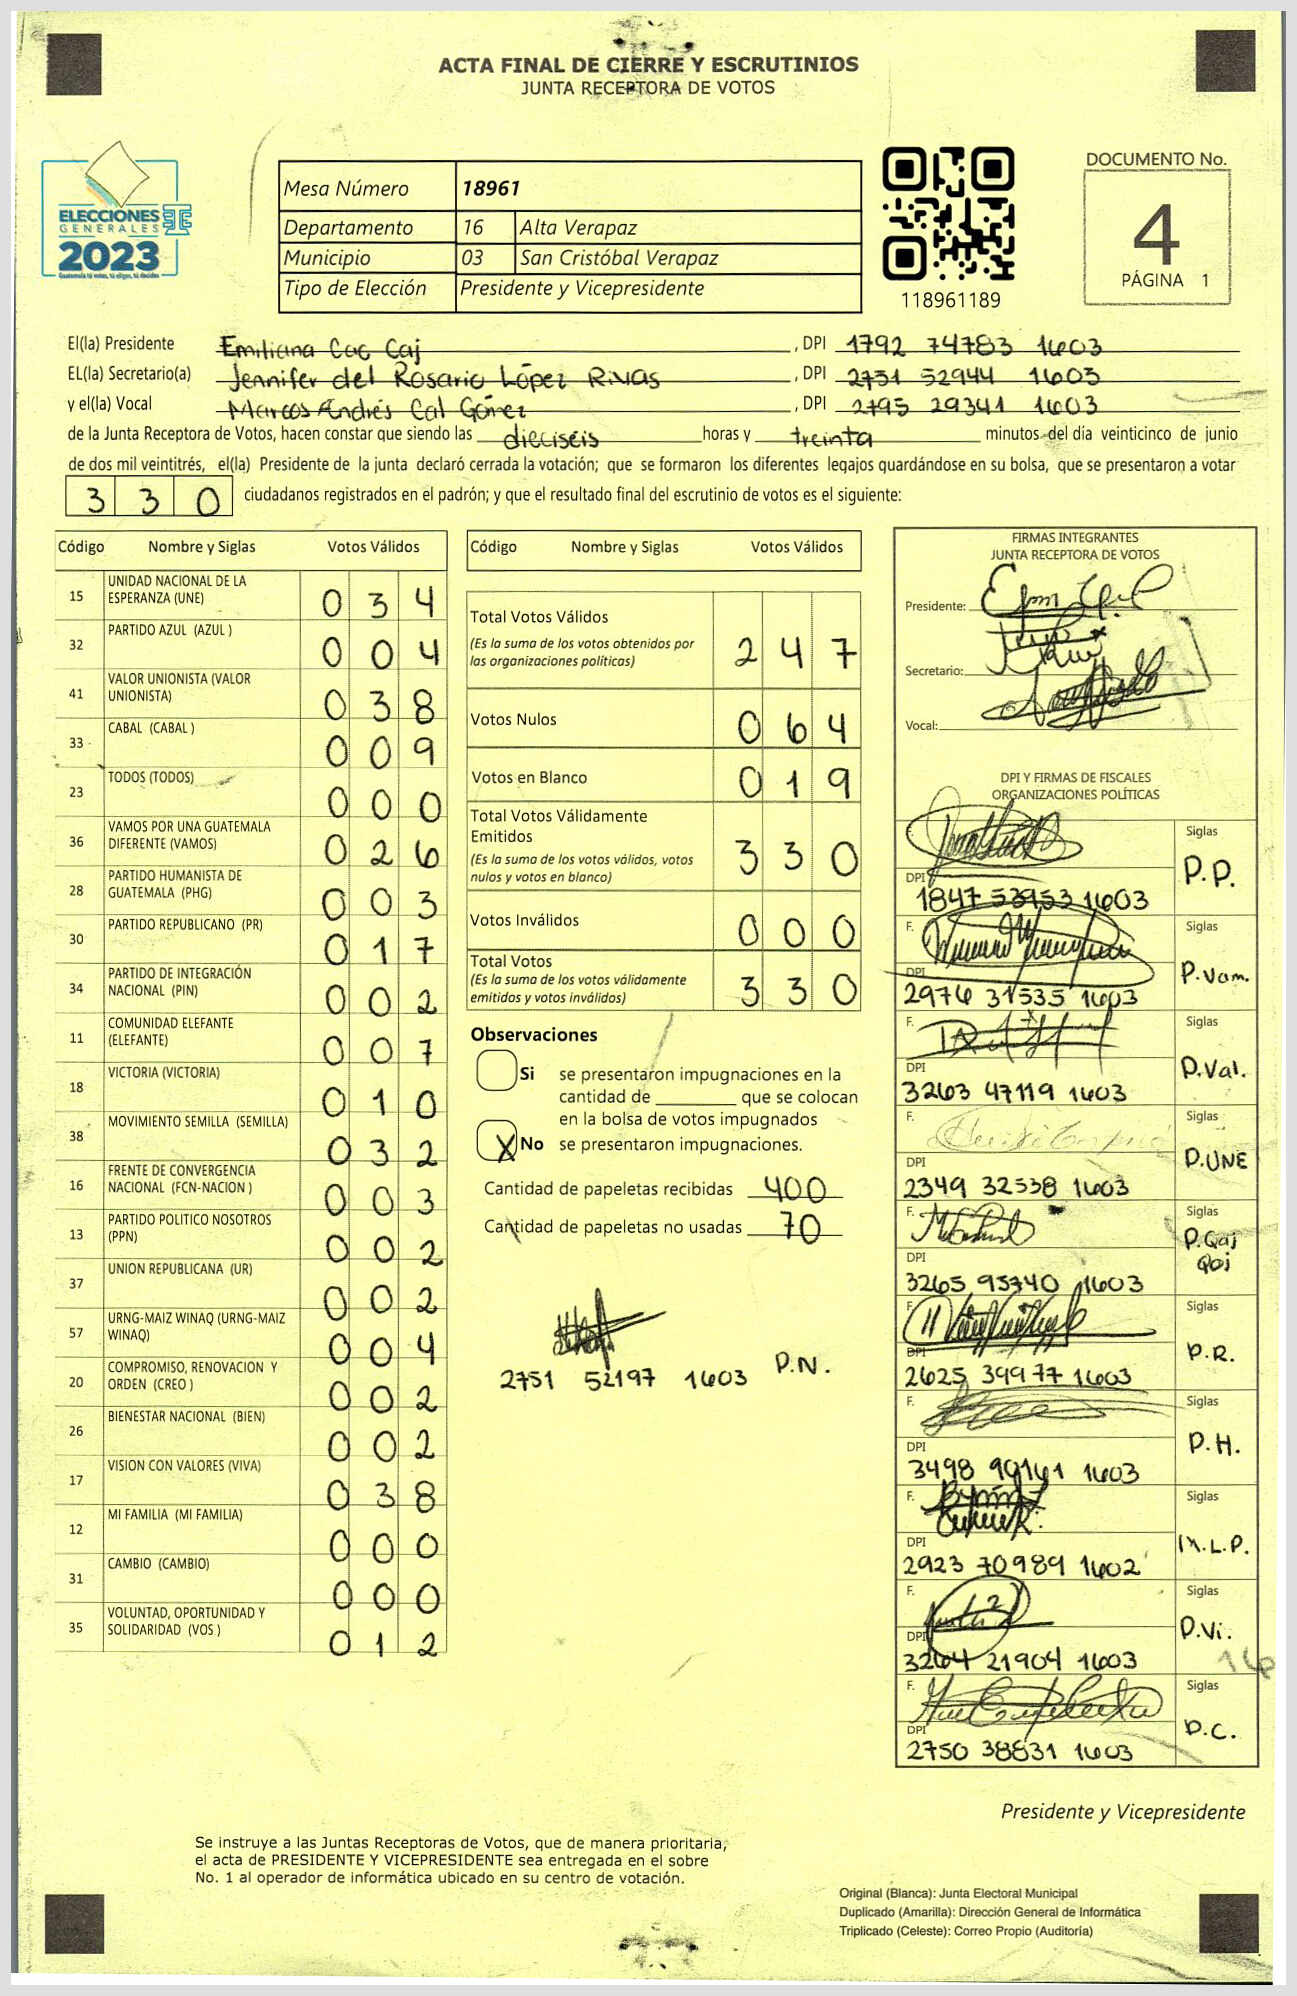 ACTA FINAL DE CIERRE Y ESCRUTINIOS
JUNTA RECEPTORA DE VOTOS
ELECCIONES
GENERALES
2023
Mesa Número 18961
Departamento 16 Alta Verapaz
Municipio 03 San Cristóbal Verapaz
Tipo de Elección Presidente y Vicepresidente
118961189
DOCUMENTO No.
4
PÁGINA 1
El(la) Presidente Emiliana Cac Caj, DPI 1792 74783 1603
EL(la) Secretario(a) Jennifer del Rosario López Rivas, DPI 2751 52944 1603
y el(la) Vocal Marcos Andrés Cal Gómez, DPI 2795 29341 1603
de la Junta Receptora de Votos, hacen constar que siendo las dieciseis horas y treinta minutos del día veinticinco de junio
de dos mil veintitrés, el(la) Presidente de la junta declaró cerrada la votación; que se formaron los diferentes legajos guardándose en su bolsa, que se presentaron a votar
330 ciudadanos registrados en el padrón; y que el resultado final del escrutinio de votos es el siguiente:
Código Nombre y Siglas Votos Válidos
15 UNIDAD NACIONAL DE LA ESPERANZA (UNE) 034
32 PARTIDO AZUL (AZUL ) 004
41 VALOR UNIONISTA (VALOR UNIONISTA) 038
33 CABAL (CABAL ) 009
23 TODOS (TODOS) 000
36 VAMOS POR UNA GUATEMALA DIFERENTE (VAMOS) 026
28 PARTIDO HUMANISTA DE GUATEMALA (PHG) 003
30 PARTIDO REPUBLICANO (PR) 017
34 PARTIDO DE INTEGRACIÓN NACIONAL (PIN) 002
11 COMUNIDAD ELEFANTE (ELEFANTE) 007
18 VICTORIA (VICTORIA) 010
38 MOVIMIENTO SEMILLA (SEMILLA) 032
16 FRENTE DE CONVERGENCIA NACIONAL (FCN-NACION ) 003
13 PARTIDO POLITICO NOSOTROS (PPN) 002
37 UNION REPUBLICANA (UR) 002
57 URNG-MAIZ WINAQ (URNG-MAIZ WINAQ) 004
20 COMPROMISO, RENOVACION Y ORDEN (CREO ) 002
26 BIENESTAR NACIONAL (BIEN) 002
17 VISION CON VALORES (VIVA) 038
12 MI FAMILIA (MI FAMILIA) 000
31 CAMBIO (CAMBIO) 000
35 VOLUNTAD, OPORTUNIDAD Y SOLIDARIDAD (VOS ) 012
Código Nombre y Siglas Votos Válidos
Total Votos Válidos 247
(Es la suma de los votos obtenidos por
las organizaciones políticas)
Votos Nulos 064
Votos en Blanco 019
Total Votos Válidamente
Emitidos 330
(Es la suma de los votos válidos, votos
nulos y votos en blanco)
Votos Inválidos 000
Total Votos 330
(Es la suma de los votos válidamente
emitidos y votos inválidos)
Observaciones
Si se presentaron impugnaciones en la
cantidad de ________ que se colocan
en la bolsa de votos impugnados
X No se presentaron impugnaciones.
Cantidad de papeletas recibidas 400
Cantidad de papeletas no usadas 70
2751 52197 1603 P.N.
FIRMAS INTEGRANTES
JUNTA RECEPTORA DE VOTOS
Presidente:
Secretario:
Vocal:
DPI Y FIRMAS DE FISCALES
ORGANIZACIONES POLÍTICAS
Siglas P.P.
DPI 1847 53953 1603
F. Siglas P.Vam.
DPI 2976 31535 1603
F. Siglas P.Val.
DPI 3263 47119 1603
F. Siglas P.UNE
DPI 2349 32538 1603
F. Siglas
DPI 3265 95740 1603
F. Siglas P.R.
DPI 2625 39977 1603
F. Siglas P.H.
DPI 3498 90161 1603
F. Siglas M.L.P.
DPI 2923 70989 1602
F. Siglas P.Vi.
DPI 3264 21904 1603
F. Siglas P.C.
DPI 2750 38831 1603
Presidente y Vicepresidente
Se instruye a las Juntas Receptoras de Votos, que de manera prioritaria,
el acta de PRESIDENTE Y VICEPRESIDENTE sea entregada en el sobre
No. 1 al operador de informática ubicado en su centro de votación.
Original (Blanca): Junta Electoral Municipal
Duplicado (Amarilla): Dirección General de Informática
Triplicado (Celeste): Correo Propio (Auditoría)